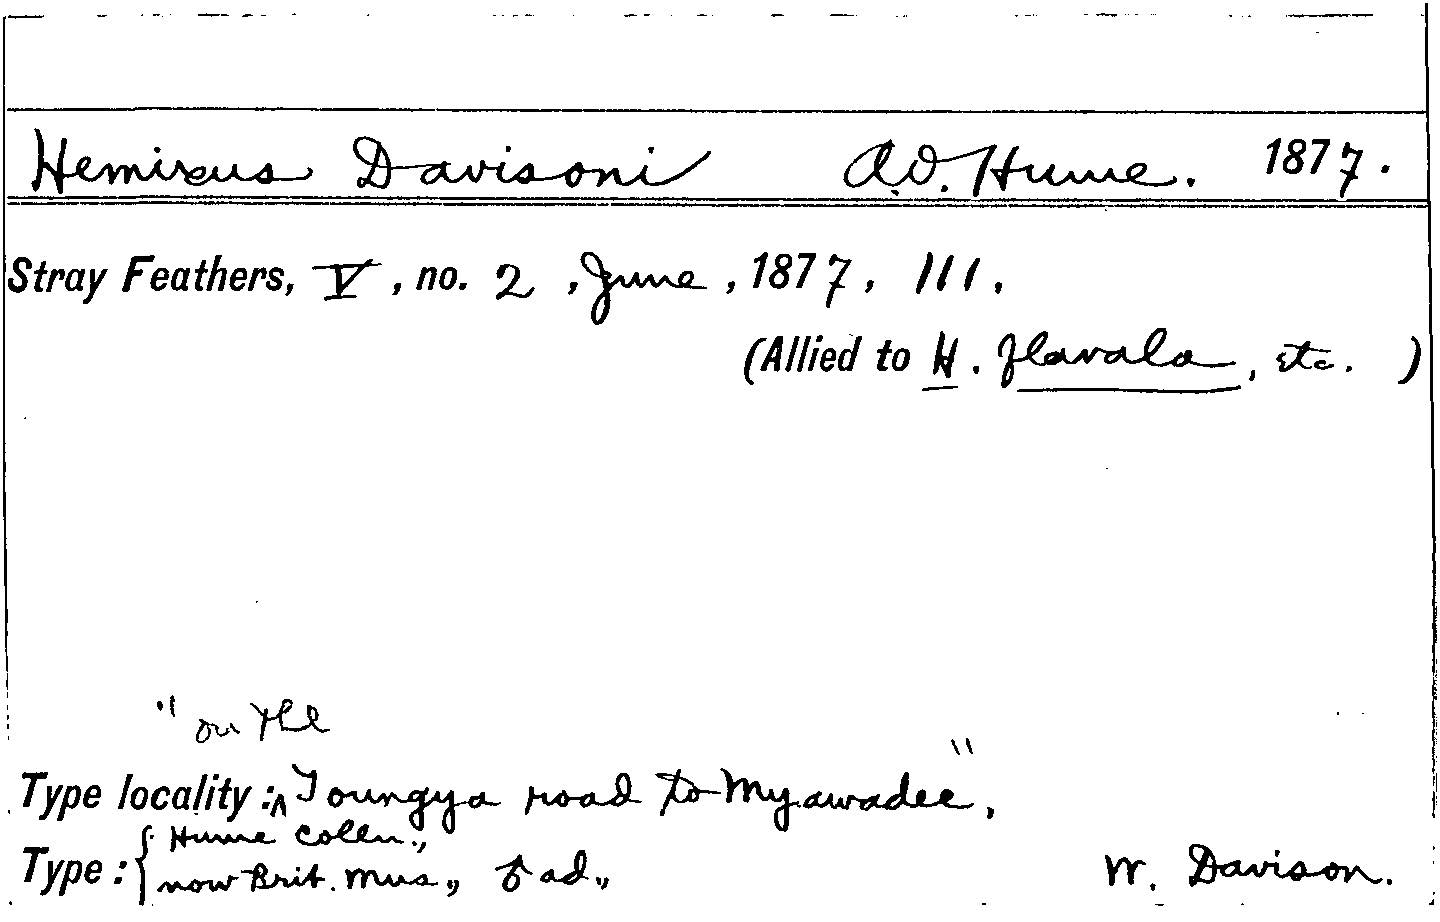 Hemixus Davisoni A.O. Hume. 1877.
Stray Feathers, V, no. 2, June, 1877, 111.
(Allied to H. flavala, etc. )
"on the
Type locality: ^ Toungya road to Myawadee",
Hume Colln.,
Type: { now Brit. Mus., ad., W. Davison.